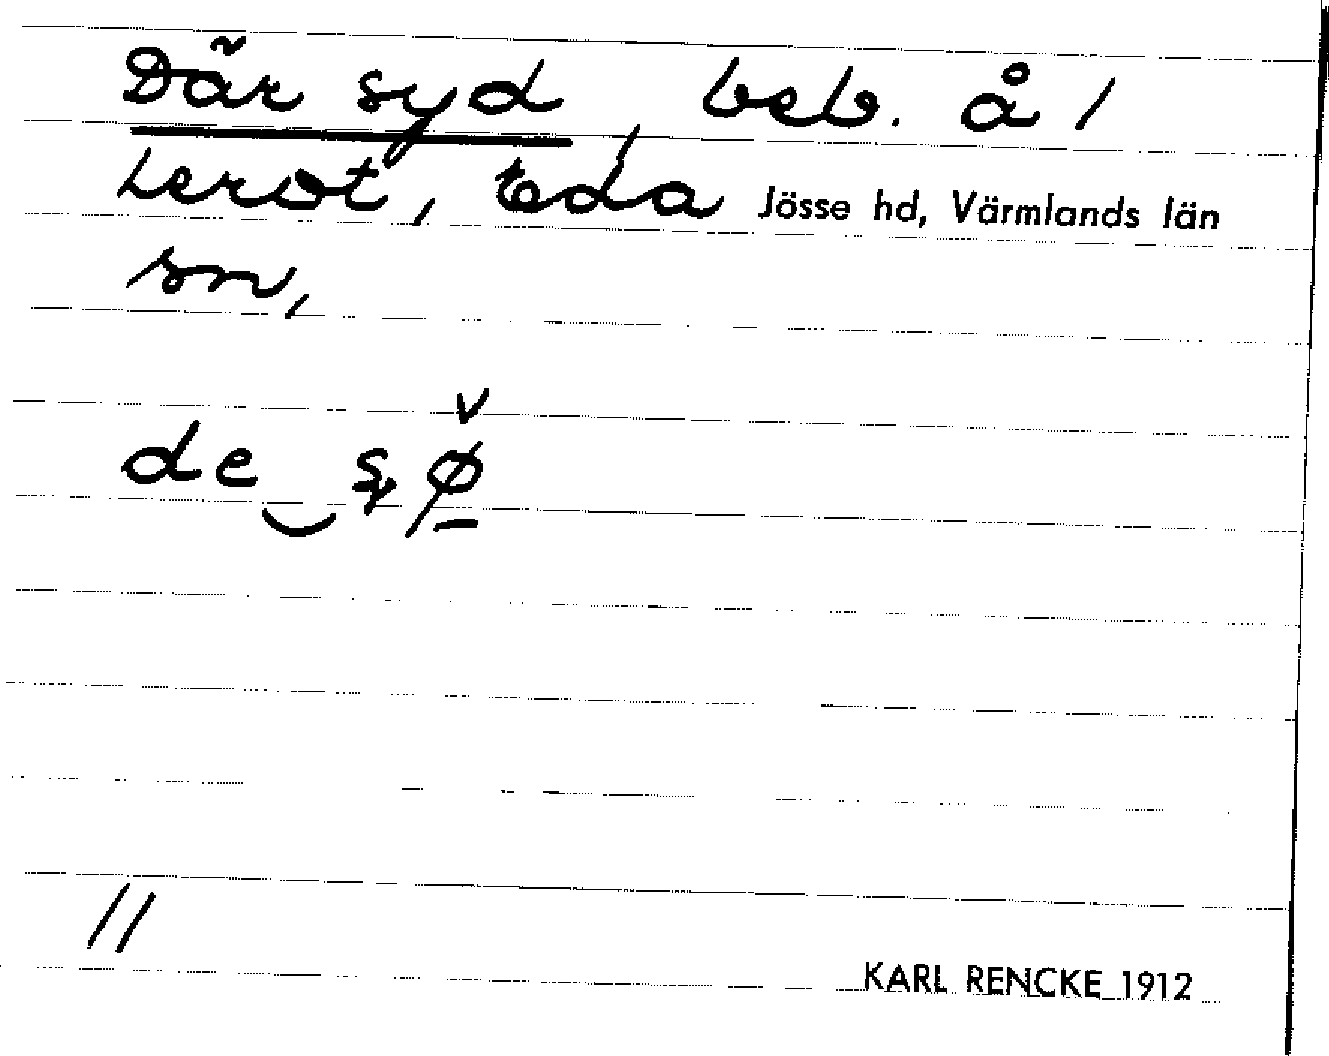 Där syd, beb. å 1
Lerot, Eda Jösse hd, Värmlands län
sn,
de sø
11
KARL RENCKE 1912